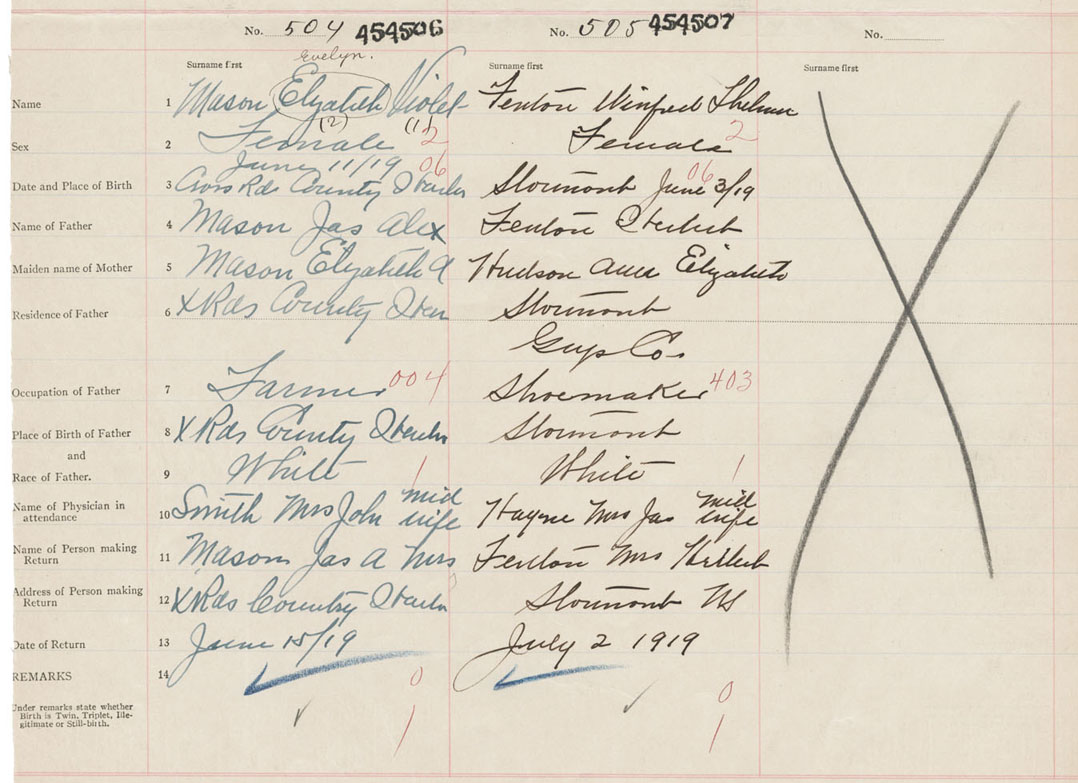 No. 504 454506 No. 505 454507 No.
Evelyn.
Surname first Surname first Surname first
Name 1 Mason Elizabeth Violet Fenton Winfred Thelma
(2) (1)
Sex 2 Female 2 Female 2
June 11/19 06
Date and Place of Birth 3 Cross Rds County Stormont 06 June 3/19
Name of Father 4 Mason Jas Alex Fenton
Maiden name of Mother 5 Mason Elizabeth A Hudson Elizabeth
Residence of Father 6 X Rds County Stormont
Guys Co.
Occupation of Father 7 Farmer 004 Shoemaker 403
Place of Birth of Father 8 X Rds County Stormont
and
Race of Father. 9 White 1 White 1
Name of Physician in attendance 10 Smith Mrs John mid wife Hayne Mrs Jas mid wife
Name of Person making Return 11 Mason Jas A Mrs Fenton Mrs
Address of Person making Return 12 X Rds Country Stormont NS
Date of Return 13 June 15/19 July 2 1919
REMARKS 14 0 0
Under remarks state whether
Birth is Twin, Triplet, Ille-
gitimate or Still-birth. 1 1